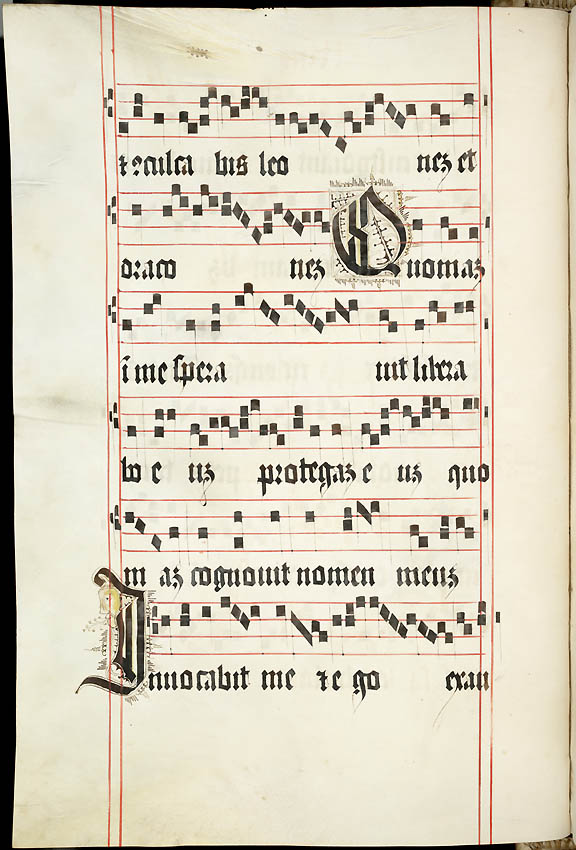 ⁊ ꝯculca bis leo neʒ et
draco neʒ Quoniaʒ
ī me spera uit libera
bo e uʒ protegaʒ e uʒ quo
ni aʒ cognouit nomen meuʒ
Inuocabit me ⁊ e go exau